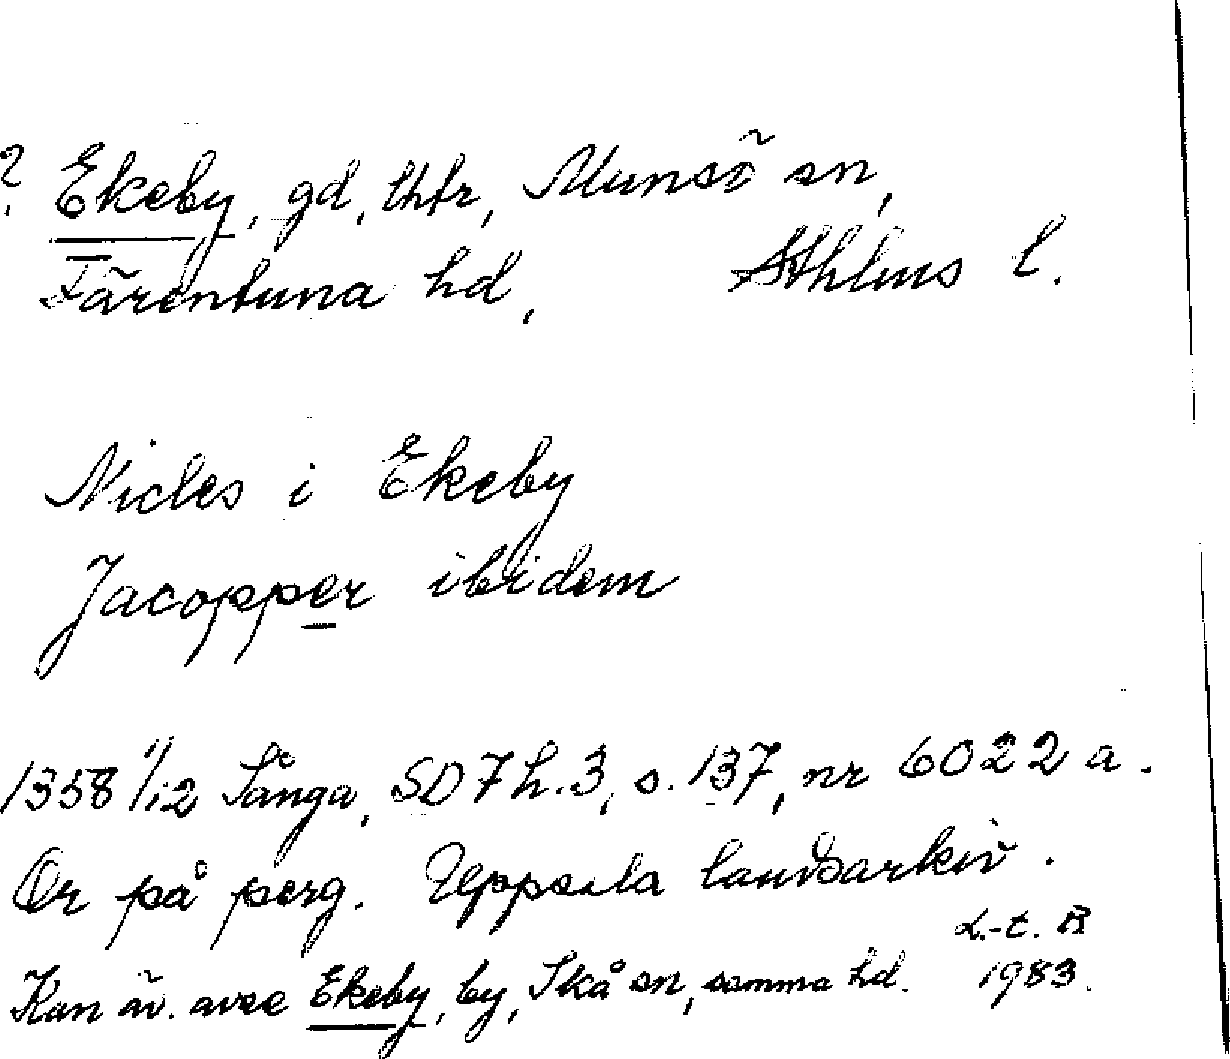 ? Ekeby, gd, tktr, Munsö sn,
Färentuna hd, Sthlms l.
Nicles i Ekeby
Jacopper ibidem
1358 1/12 Sånga, SD 7 h. 3, s. 137, nr 6022 a.
Or på perg. Uppsala landsarkiv.
L.-E. R
Kan äv. avse Ekeby, by, Skå sn, samma hd. 1983.